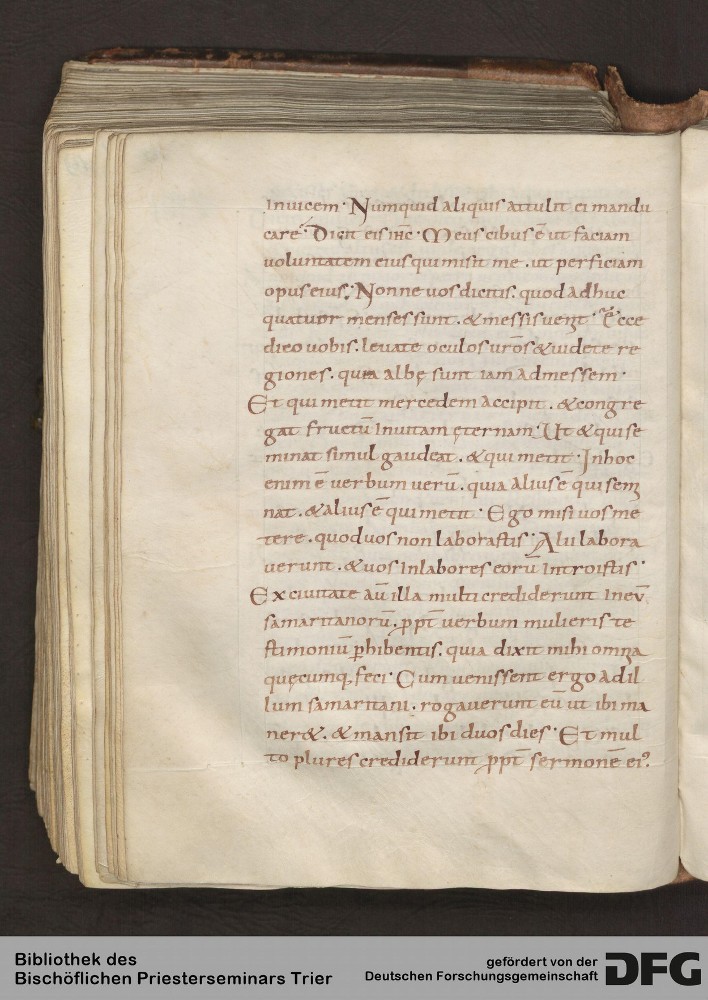 inuicem· Numquid aliquis attulit ei mandu
care·Dicit eis ihc̄· Meus cibus ē ut faciam
uoluntatem eius qui misit me . ut perficiam
opus eius· Nonne uos dicitis. quod adhuc
quatuor menses sunt . & messis uenit· Ecce
dico uobis . leuate oculos urōs & uidete re
giones . quia albę sunt iam ad messem·
Et qui metit mercedem accipit . & congre
gat fructū in uitam ęternam· Ut & qui se
minat simul gaudeat . & qui metit· In hoc
enim ē uerbum uerū . quia alius ē qui semi
nat . & alius ē qui metit· Ego misi uos me
tere . quod uos non laborastis· Alii labora
uerunt . & uos in labores eorū introistis·
Ex ciuitate aū illa multi crediderunt in eū
samaritanorū . ppt̄ uerbum mulieris te
stimoniū phibentis . quia dixit mihi omnia
quęcumq, feci· Cum uenissent ergo ad il
lum samaritani . rogauerunt eū ut ibi ma
ner& . & mansit ibi duos dies· Et mul
to plures crediderunt ppt̄ sermonē eiꝰ.
Bibliothek des
Bischöflichen Priesterseminars Trier
gefördert von der
Deutschen Forschungsgemeinschaft
DFG